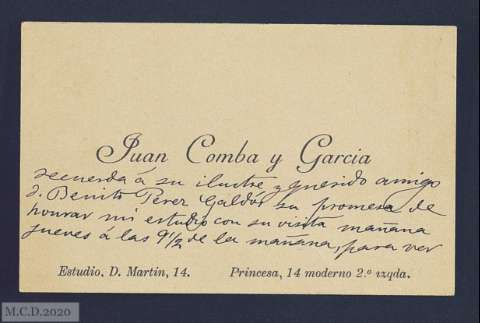 Juan Comba y Garcia
recuerda á su ilustre y querido amigo
D. Benito Pérez Galdós su promesa de
honrar mi estudio con su visita mañana
jueves á las 9½ de la mañana, para ver
Estudio, D. Martin, 14. Princesa, 14 moderno 2.º izqda.
M.C.D.2020